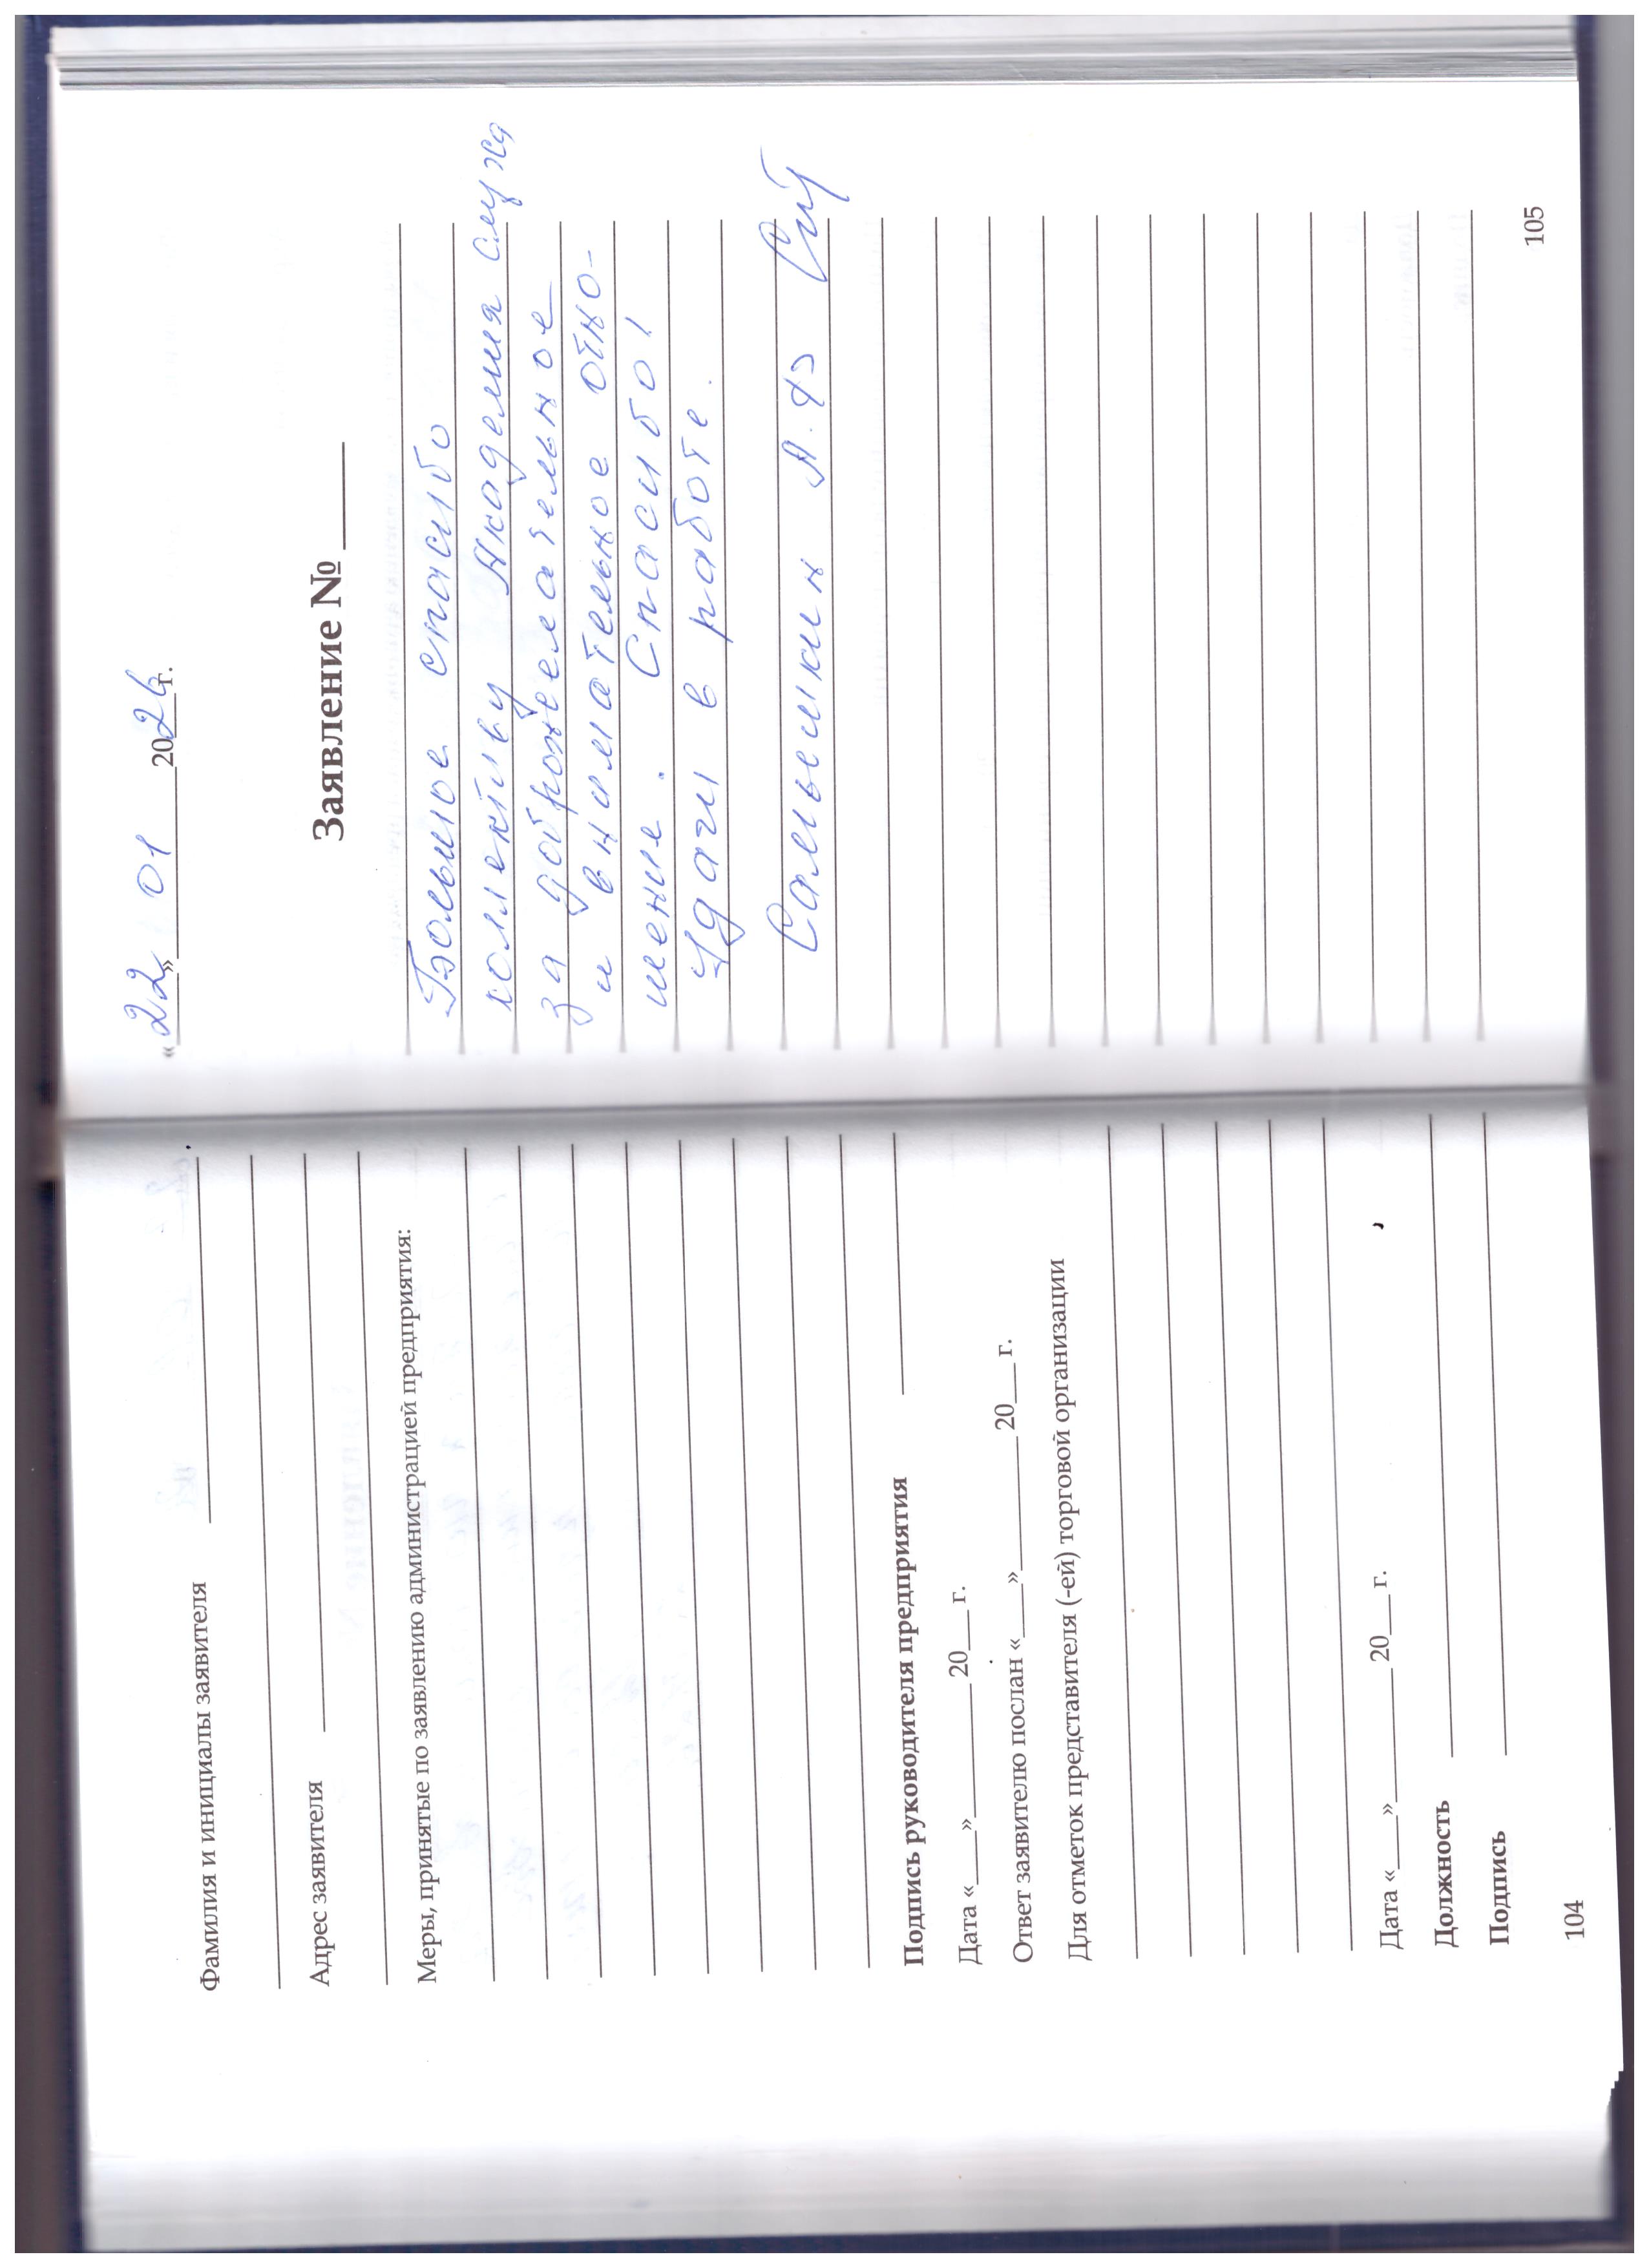 Фамилия и инициалы заявителя
Адрес заявителя
Меры, принятые по заявлению администрацией предприятия:
Подпись руководителя предприятия
Дата «___»__________20___г.
Ответ заявителю послан «___»__________20___г.
Для отметок представителя (-ей) торговой организации
Дата «___»__________20___г.
Должность
Подпись
104
«22» 01 2026г.
Заявление №
Большое спасибо
коллективу Академия Слуха
за доброжелательное
и внимательное отно-
шение. Спасибо!
Удачи в работе.
105